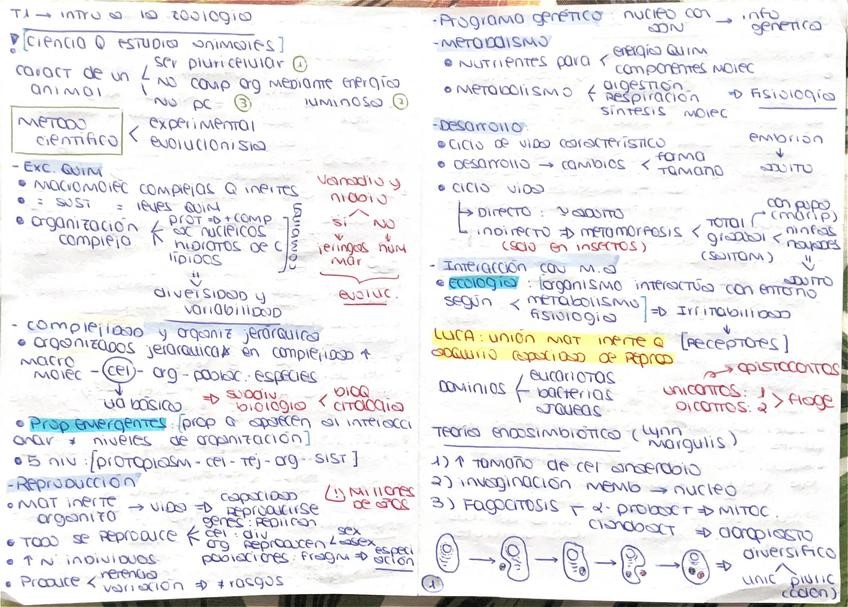 T1 → intro a la zoología
[ciencia q estudia animales]
caract de un animal
ser pluricelular ①
No comp org mediante energía luminosa ②
No pc ③
método científico < experimental
evolucionista
- Exc. QUIM
• macromolec complejas q inertes
• = sust = leyes quim
• organización compleja
prot → + comp
ac nucleicos
hidratos de C
lípidos
varíamos
=
diversidad y variabilidad
vanadio y niobio
sí NO
jeringas mar
num
evoluc.
- complejidad y organiz jerárquica
• organizados jerárquicax en complejidad ↑
macro molec - cel - org - poblac - especies
ud básica ⇒ subdiv biología < bioq
citología
• Prop emergentes: [prop q aparecen al interaccionar ≠ niveles de organización]
• 5 niv: [protoplasm - cel - tej - org - sist]
- Reproducción
• mat inerte organiza → vida ⇒ capacidad reproducirse
(!) millones de años
• Todo se reproduce
genes: replican
cel: div
org reproducen < sex
asex
poblaciones: fragm ⇒ especiación
• ↑ n individuos
• Produce < herencia
variación ⇒ ≠ rasgos
- Programa genético: nucleo con ADN → info genética
- metabolismo
• Nutrientes para < energía quim
componentes molec
• metabolismo < digestión
respiración
síntesis molec
⇒ fisiología
- Desarrollo:
• ciclo de vida característico
• desarrollo → cambios < forma
tamaño
embrión
↓
adulto
• ciclo vida
↳ Directo: > adulto
↳ indirecto ⇒ metamorfosis (solo en insectos)
< total
gradual (saltam)
con pupa (marip)
ninfas
nayades
⇓
adulto
- Interacción con M.A
• ecología: [organismo interactúa con entorno
según < metabolismo
fisiología] ⇒ Irritabilidad
↓
[receptores]
LUCA: unión mat inerte q adquirió capacidad de reprod
Dominios < eucariotas
bacterias
arqueas
→ opistocontos
unicontos: 1
bicontos: 2 > flage
Teoría endosimbiótica (Lynn Margulis)
1) ↑ tamaño de cel anaerobia
2) invaginación memb → nucleo
3) Fagocitosis
α-probact ⇒ mitoc.
cianobact ⇒ cloroplasto
⇒ diversifico
unic pluric (colon)
①